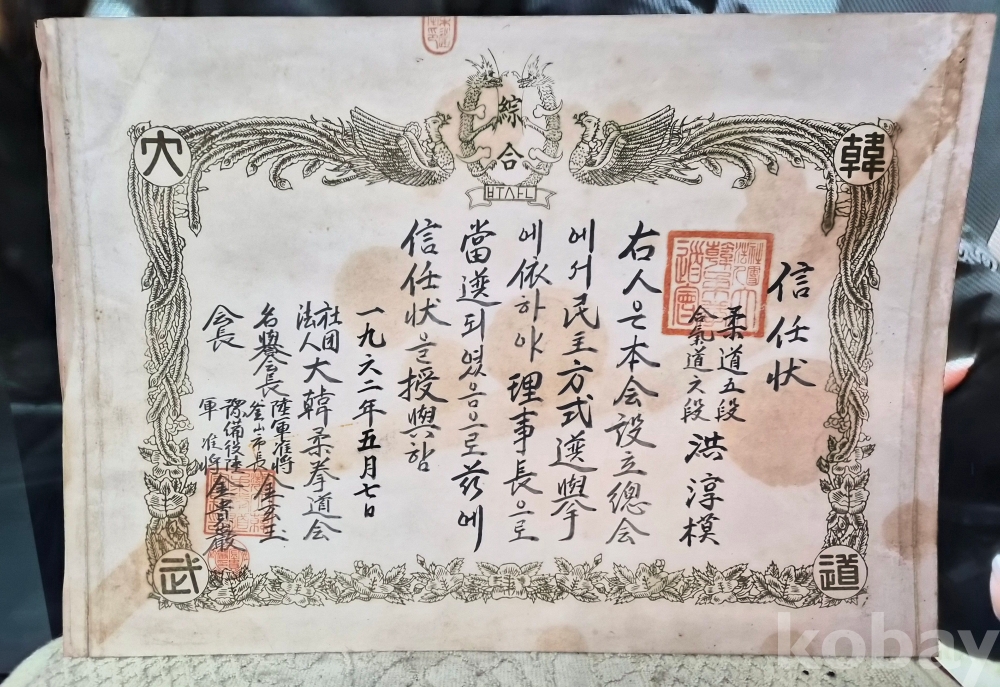 綜合
ㅂㅜㅅㅏㄴ
大
韓
信任状
柔道五段
合氣道六段
洪淳模
右人은本会設立總会
에서民主方式選擧
에依하야理事長으로
當選되였음으로玆에
信任状을授與함
一九六二年五月七日
社団法人大韓柔拳道会
名譽会長 陸軍准将 釜山市長 金玄玉
会長 豫備役陸軍准将 金
武
道
kobay